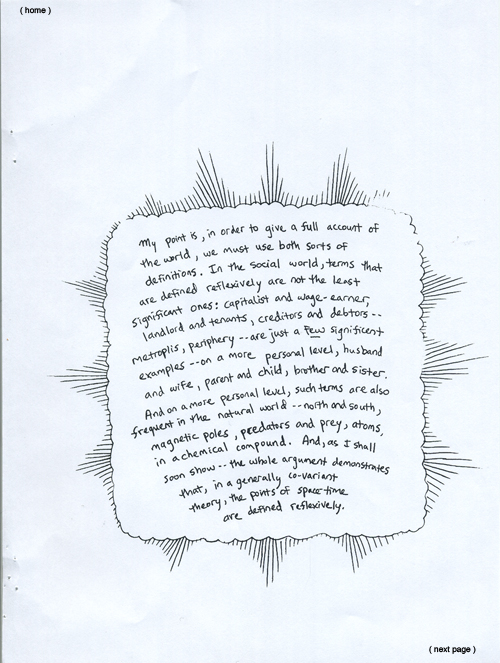 ( home )
My point is, in order to give a full account of
the world, we must use both sorts of
definitions. In the social world, terms that
are defined reflexively are not the least
significant ones: capitalist and wage-earner,
landlord and tenants, creditors and debtors --
metroplis, periphery -- are just a few significent
examples -- on a more personal level, husband
and wife, parent and child, brother and sister.
And on a more personal level, such terms are also
frequent in the natural world -- north and south,
magnetic poles, predators and prey, atoms,
in a chemical compound. And, as I shall
soon show -- the whole argument demonstrates
that, in a generally co-variant
theory, the points of space time
are defined reflexively.
( next page )